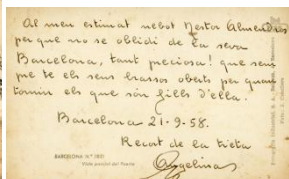 Al meu estimat nebot Nestor Almendros
per que no se oblidi de la seva
Barcelona, tant preciosa! que sem
pre te els seus brassos oberts per quan
tornin els que són fills d'ella.
Barcelona 21-9-58.
Recort de la tieta
Angelina
BARCELONA N.º
Vista parcial del Puerto